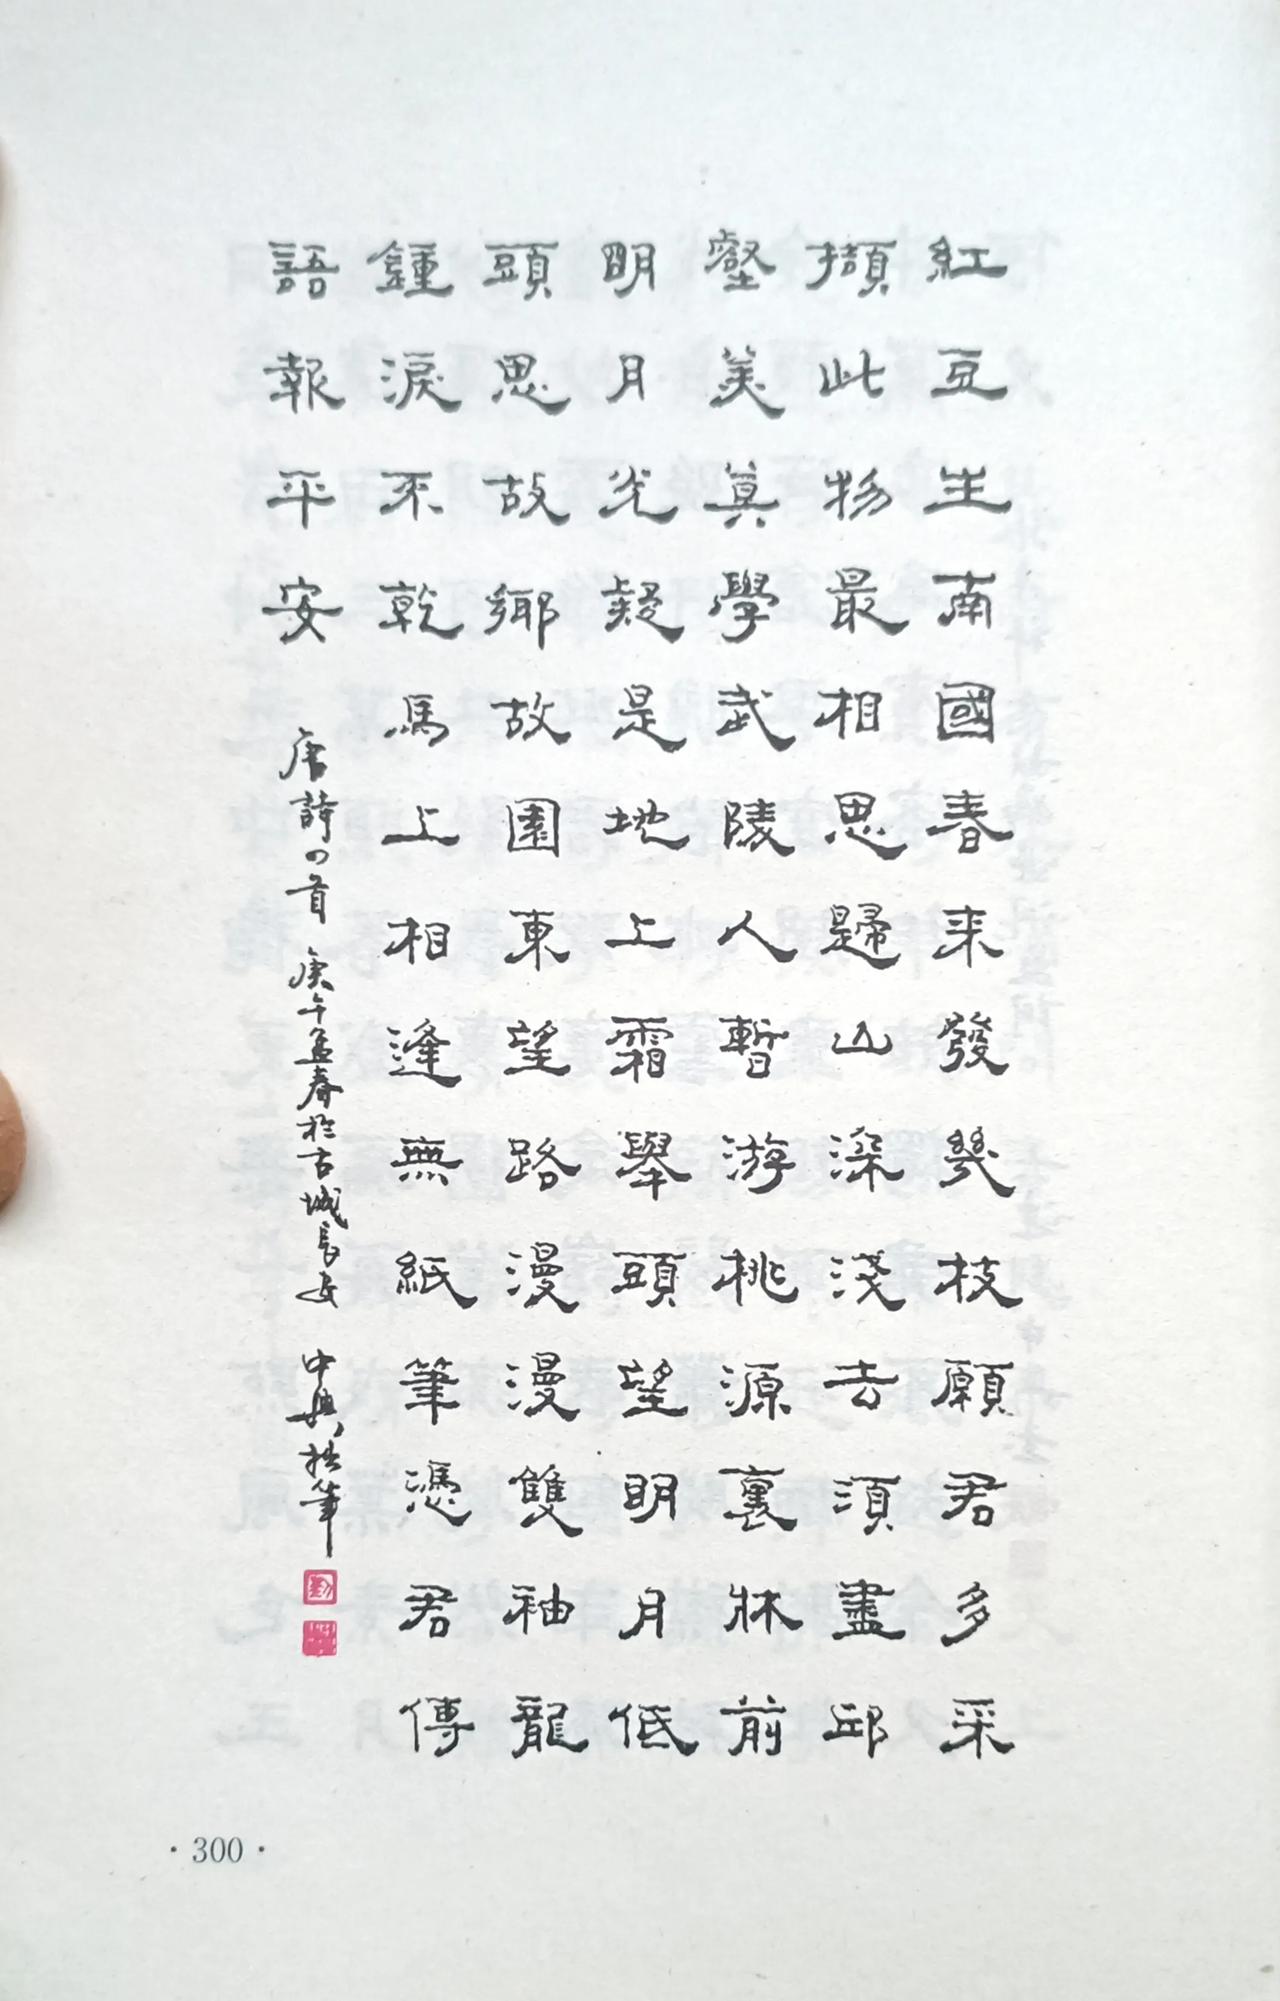 紅豆生南國春來發幾枝願君多采
擷此物最相思歸山深淺去須盡邱
壑美莫學武陵人暫游桃源裏牀前
明月光疑是地上霜舉頭望明月低
頭思故鄉故園東望路漫漫雙袖龍
鍾淚不乾馬上相逢無紙筆憑君傳
語報平安
唐詩四首 庚午孟春於古城長安 中興拙筆
·300·